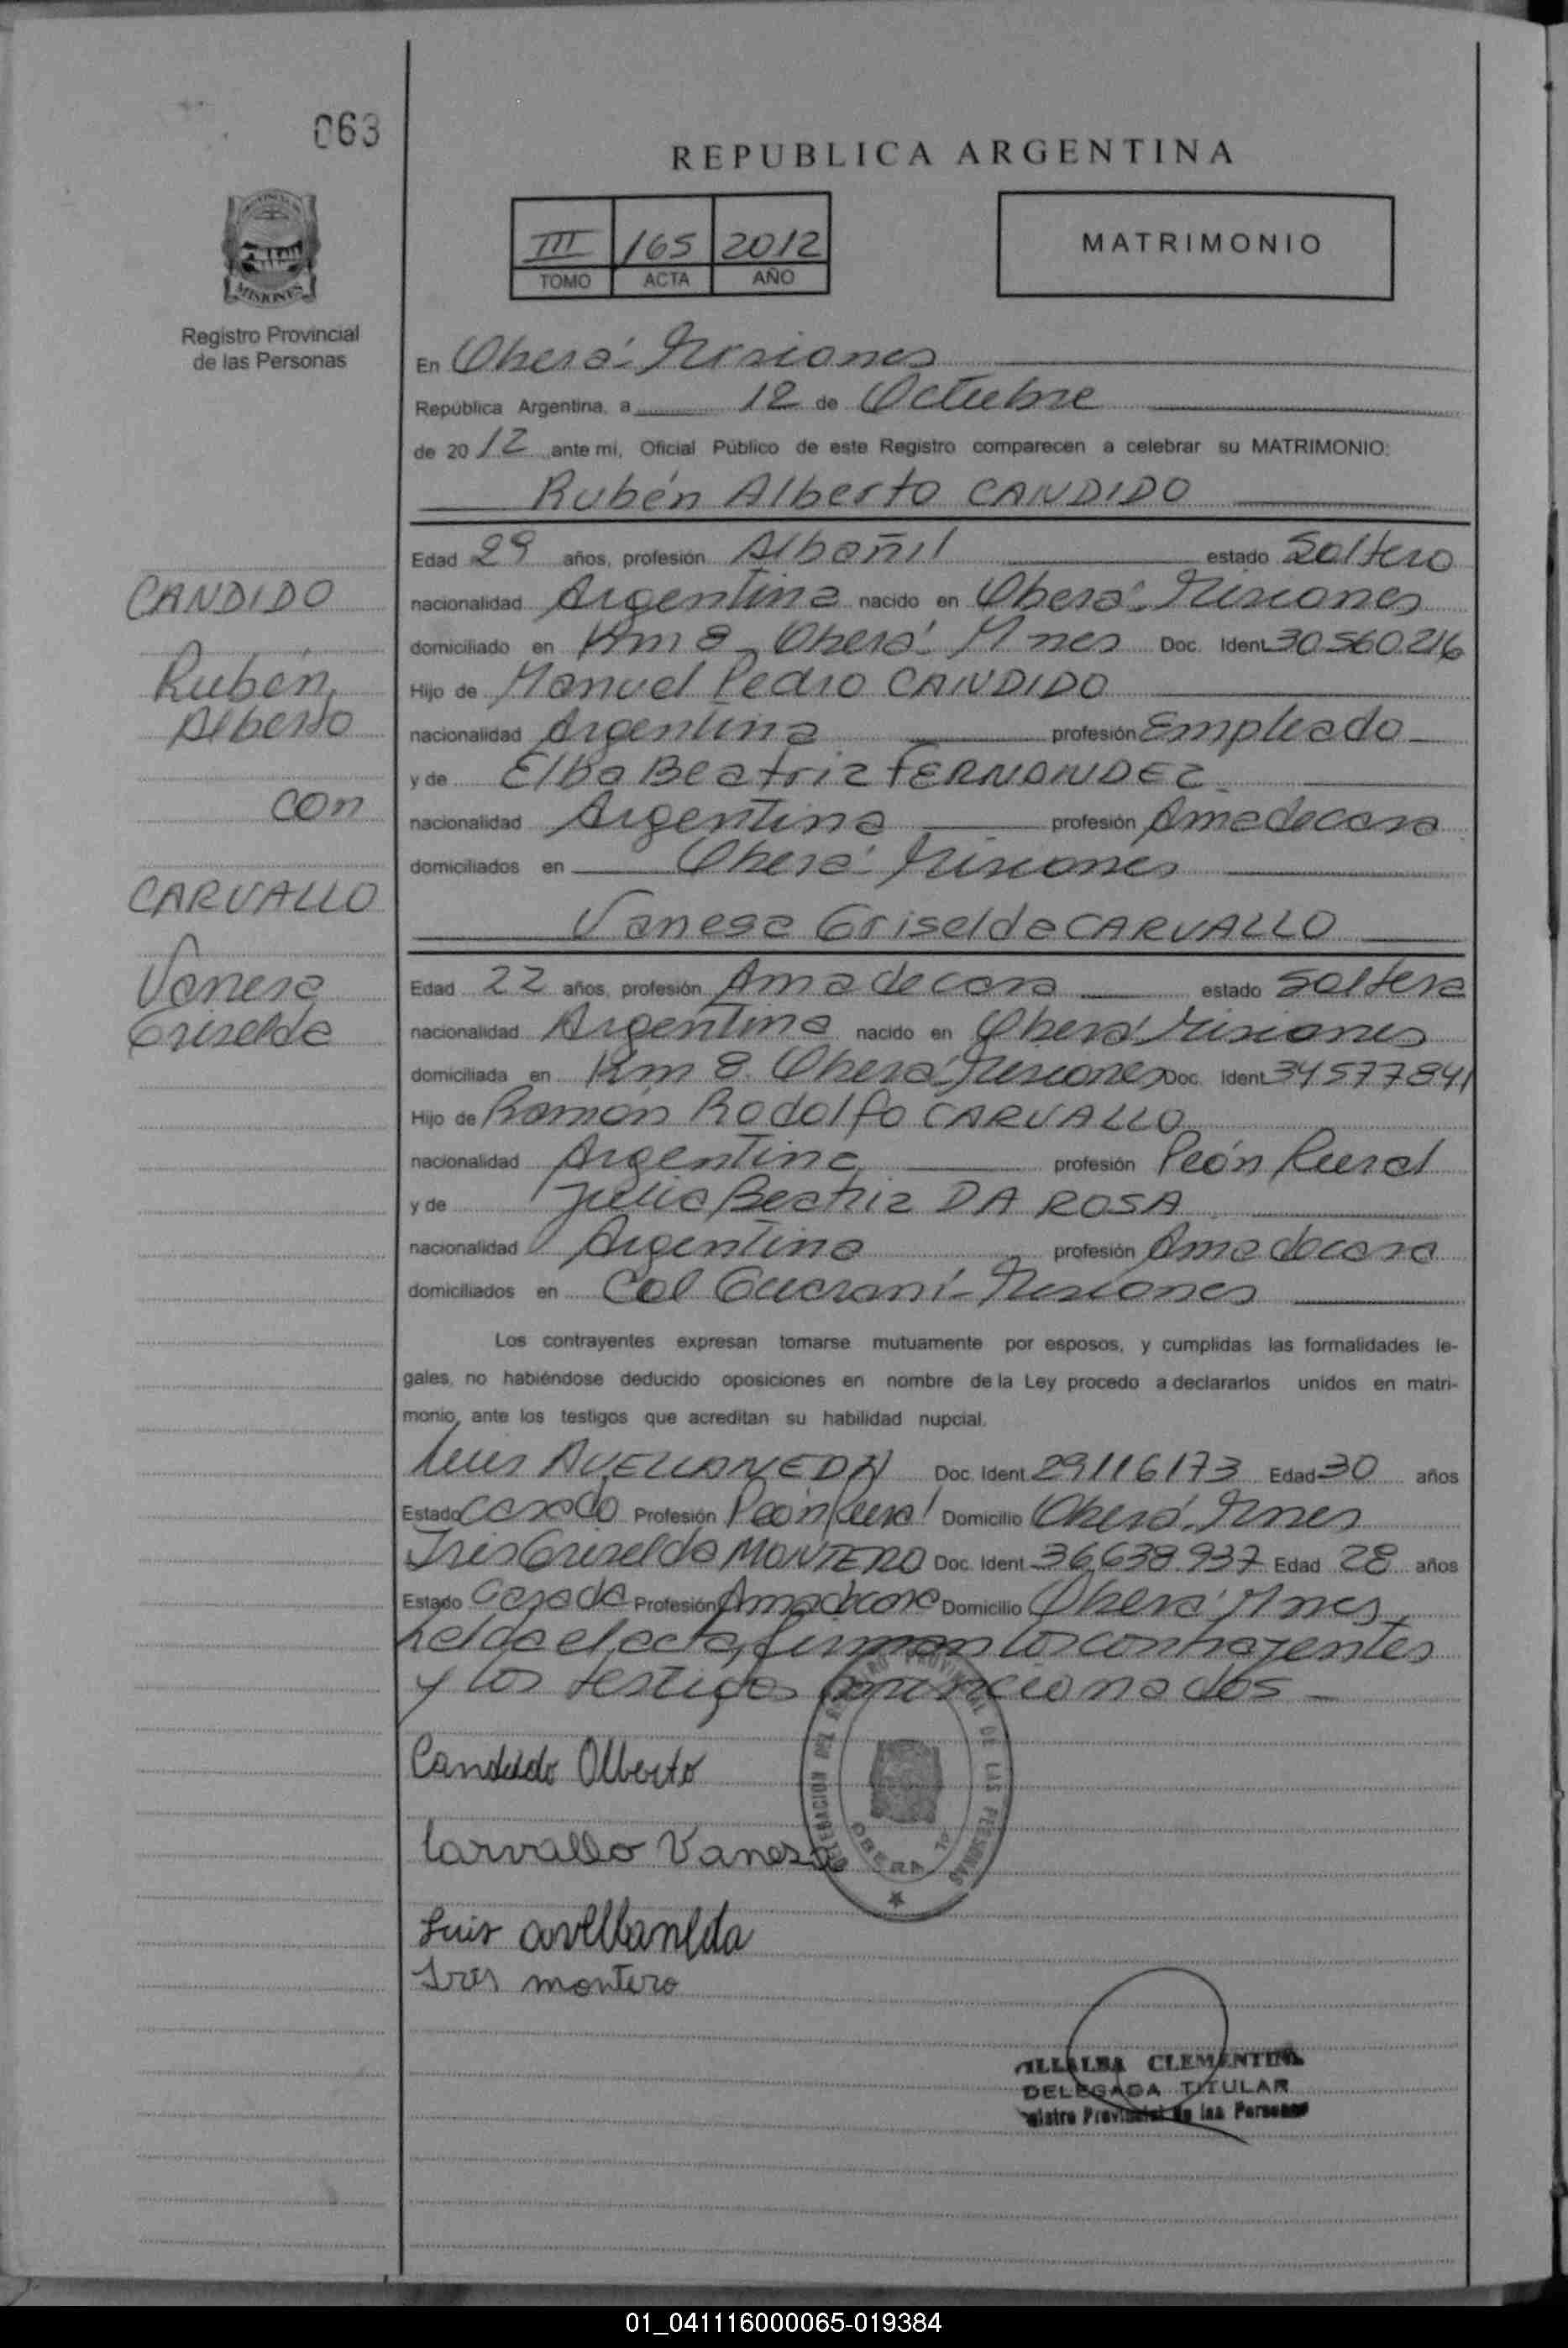 063
REPUBLICA ARGENTINA
III 165 2012
TOMO ACTA AÑO
MATRIMONIO
MISIONES
Registro Provincial
de las Personas
En Oberá - Misiones
República Argentina, a 12 de Octubre
de 2012 ante mi, Oficial Público de este Registro comparecen a celebrar su MATRIMONIO:
Rubén Alberto CANDIDO
Edad 29 años, profesión Albañil estado Soltero
nacionalidad Argentina nacido en Oberá - Misiones
domiciliado en Km 8 - Oberá - Mnes Doc. Ident. 30.560.216
Hijo de Manuel Pedro CANDIDO
nacionalidad Argentina profesión Empleado
y de Elba Beatriz FERNANDEZ
nacionalidad Argentina profesión Ama de casa
domiciliados en Oberá - Misiones
Vanesa Griselda CARVALLO
Edad 22 años, profesión Ama de casa estado Soltera
nacionalidad Argentina nacido en Oberá - Misiones
domiciliada en Km 8 - Oberá - Misiones Doc. Ident. 34.577.841
Hijo de Ramón Rodolfo CARVALLO
nacionalidad Argentina profesión Peón Rural
y de Julia Beatriz DA ROSA
nacionalidad Argentina profesión Ama de casa
domiciliados en Col Guaraní - Misiones
CANDIDO
Rubén
Alberto
con
CARVALLO
Vanesa
Griselda
Los contrayentes expresan tomarse mutuamente por esposos, y cumplidas las formalidades le-
gales, no habiéndose deducido oposiciones en nombre de la Ley procedo a declararlos unidos en matri-
monio, ante los testigos que acreditan su habilidad nupcial.
Luis AVELLANEDA Doc. Ident. 29116173 Edad 30 años
Estado Casado Profesión Peón Rural Domicilio Oberá - Mnes
Iris Griselda MONTERO Doc. Ident. 36.638.937 Edad 28 años
Estado Casada Profesión Ama de casa Domicilio Oberá - Mnes
Leída el acta, firman los contrayentes
y los testigos mencionados -
DELEGACION DEL REGISTRO PROVINCIAL DE LAS PERSONAS
OBERA
Candido Alberto
Carvallo Vanesa
Luis avellaneda
Iris montero
VILLALBA CLEMENTINA
DELEGADA TITULAR
Registro Provincial de las Personas
01_041116000065-019384